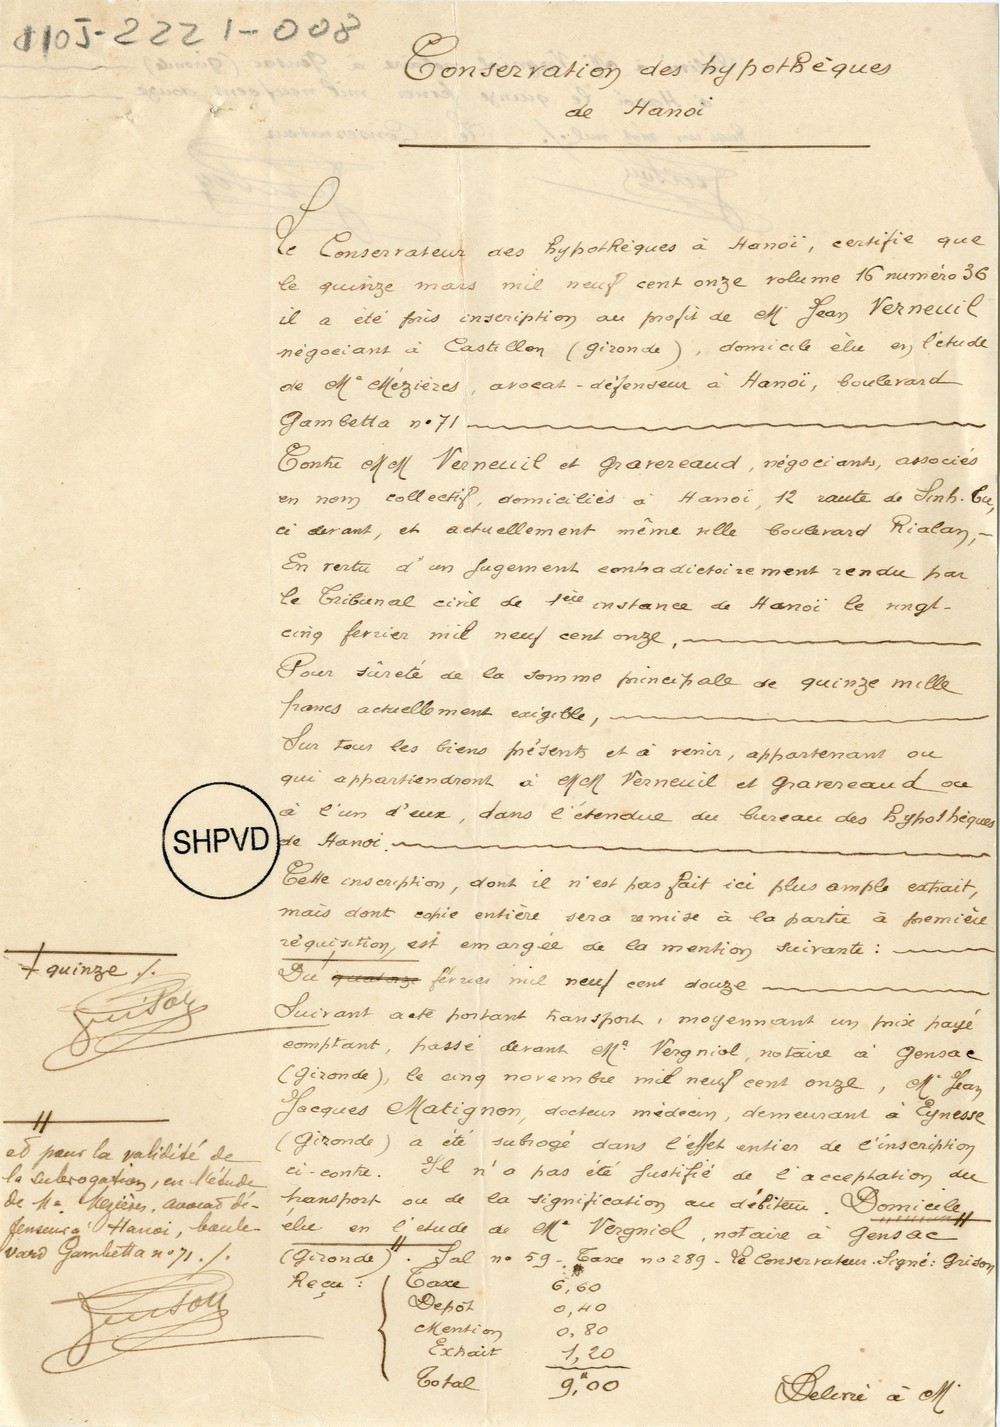 110J-2221-008
Conservation des hypothèques
de Hanoï
Le Conservateur des hypothèques à Hanoï, certifie que
le quinze mars mil neuf cent onze volume 16 numéro 36
il a été pris inscription au profit de Mr Jean Verneuil
négociant à Castillon (Gironde), domicile élu en l'étude
de Me Mézières, avocat-défenseur à Hanoï, boulevard
Gambetta no 71
Contre MM Verneuil et Gravereaud, négociants, associés
en nom collectif, domiciliés à Hanoï, 12 route de Sinh-Cu,
ci devant, et actuellement même ville boulevard Rialan,-
En vertu d'un jugement contradictoirement rendu par
le Tribunal civil de 1ère instance de Hanoï le vingt-
cinq fevrier mil neuf cent onze,
Pour sûreté de la somme principale de quinze mille
francs actuellement exigible,
Sur tous les biens présents et à venir, appartenant ou
qui appartiendront à MM Verneuil et Gravereaud ou
à l'un d'eux, dans l'étendue du bureau des hypothèques
de Hanoi.
SHPVD
Cette inscription, dont il n'est pas fait ici plus ample extrait,
mais dont copie entière sera remise à la partie à première
réquisition, est emargée de la mention suivante :
Du quatorze février mil neuf cent douze
+ quinze ./.
Suivant acte portant transport, moyennant un prix payé
comptant, passé devant Me Vergniol, notaire à Gensac
(Gironde), le cinq novembre mil neuf cent onze, Mr Jean
Jacques Matignon, docteur médecin, demeurant à Eynesse
(Gironde) a été subrogé dans l'effet entier de l'inscription
ci-contre. Il n'a pas été justifié de l'acceptation du
transport ou de la signification au débiteur. Domicile //
élu en l'etude de Me Vergniol, notaire à Gensac
(Gironde). Sal no 59 - Taxe no 289 - Le Conservateur. Signé : Grison
//
et pour la validité de
la subrogation, en l'étude
de Me Mézières, avocat dé-
fenseur à Hanoi, boule-
vard Gambetta no 71. ./.
Reçu :
Taxe 6,60
Depôt 0,40
Mention 0,80
Extrait 1,20
Total 9,00
Délivré à Mr